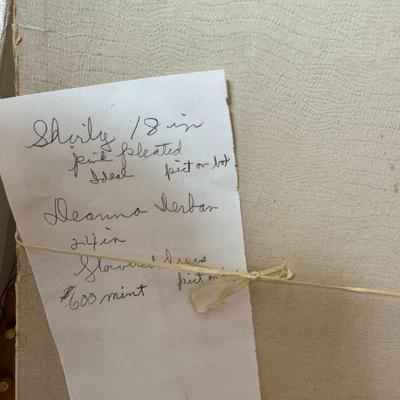 Shirley 18 in
pink pleated
Ideal pict on box
Deanna Derban
24 in
flowered dress
pict on
$600 mint